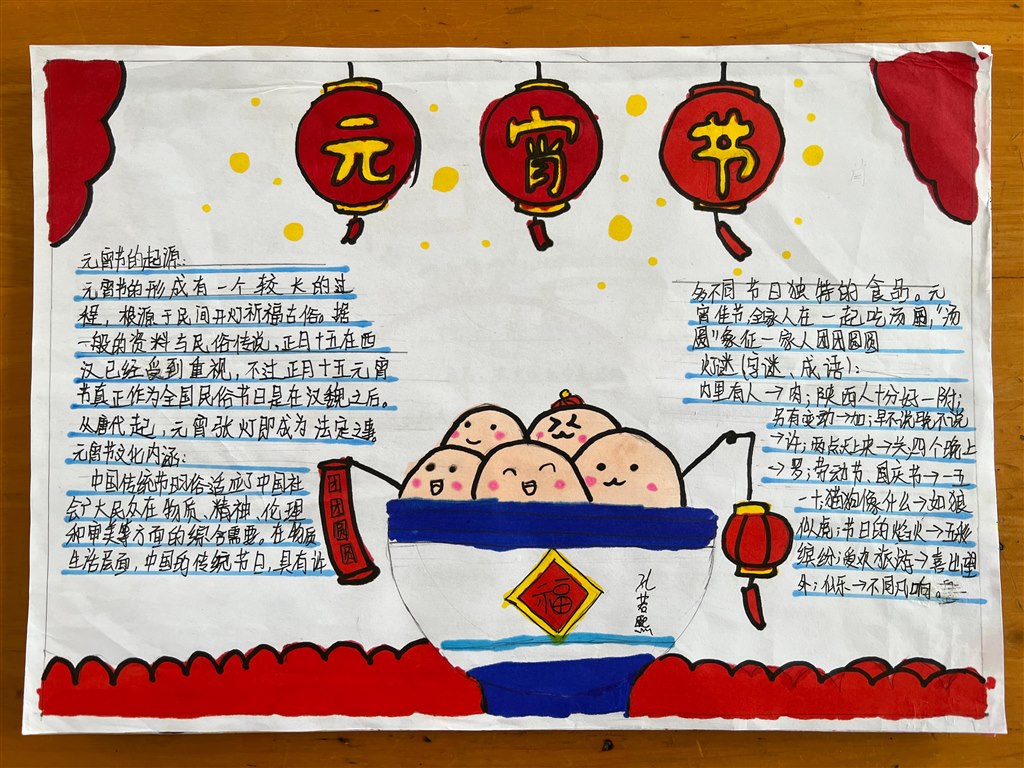 元宵节
元宵节的起源:
元宵节的形成有一个较长的过
程，根源于民间开灯祈福古俗。据
一般的资料与民俗传说，正月十五在西
汉已经受到重视，不过正月十五元宵
节真正作为全国民俗节日是在汉魏之后。
从唐代起，元宵张灯即成为法定之事
元宵节文化内涵:
中国传统节日习俗适应了中国社
会广大民众在物质、精神、伦理
和审美等方面的综合需要。在物质
生活层面，中国的传统节日，具有许
多不同节日独特的食品。元
宵佳节全家人在一起吃汤圆，“汤
圆”象征一家人团团圆圆
灯迷(字迷、成语):
内里有人→肉；陕西人十分好→附；
另有变动→加；早不说晚不说
→许；两点天上来→关；四个晚上
→罗；劳动节、国庆节→一五
一十；猫狗像什么→如狼
似虎；节日的焰火→五彩
缤纷；爱好旅游→喜出望
外；仙乐→不同凡响。
团团圆圆
福
孔若熙